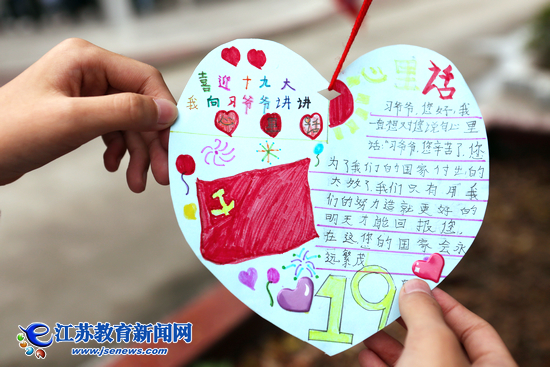 喜迎十九大
我向习爷爷讲讲
话
习爷爷,您好!我
一直想对您说句心里
话:"习爷爷,您辛苦了,您
为了我们的国家付出的
太多了,我们只有用我
们的努力造就更好的
明天才能回报您,
在这您的国家会永
远繁茂
19
江苏教育新闻网
www.jsenews.com